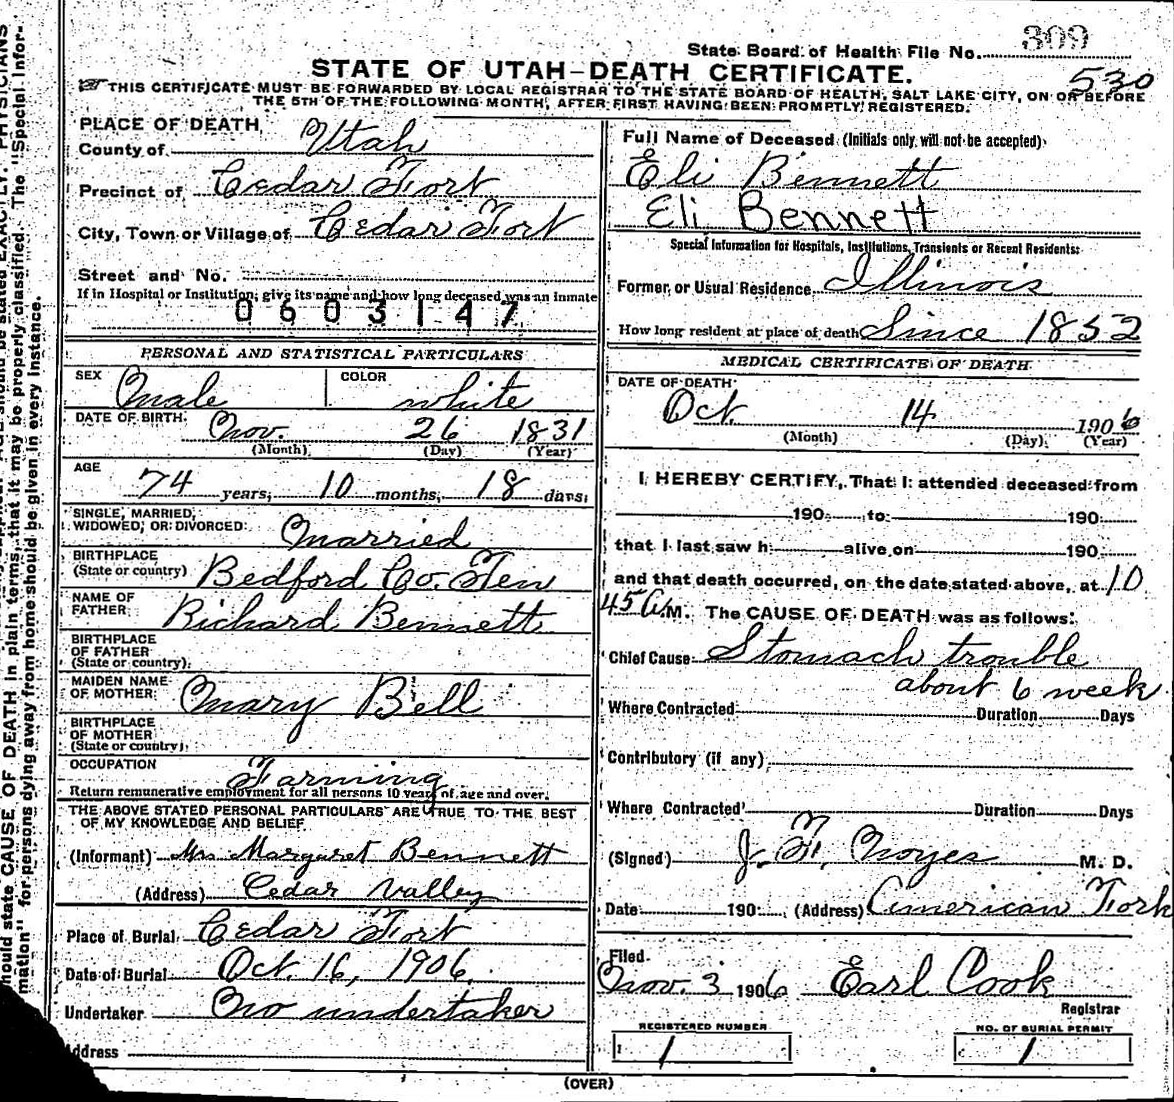 State Board of Health File No. 309
530
STATE OF UTAH-DEATH CERTIFICATE.
THIS CERTIFICATE MUST BE FORWARDED BY LOCAL REGISTRAR TO THE STATE BOARD OF HEALTH, SALT LAKE CITY, ON OR BEFORE
THE 5TH OF THE FOLLOWING MONTH, AFTER FIRST HAVING BEEN PROMPTLY REGISTERED.
PLACE OF DEATH,
County of Utah
Precinct of Cedar Fort
City, Town or Village of Cedar Fort
Street and No.
If in Hospital or Institution, give its name and how long deceased was an inmate
0603147
PERSONAL AND STATISTICAL PARTICULARS
SEX Male COLOR white
DATE OF BIRTH. Nov. 26 1831
(Month) (Day) (Year)
AGE
74 years, 10 months, 18 days,
SINGLE, MARRIED,
WIDOWED, OR DIVORCED: Married
BIRTHPLACE
(State or country) Bedford Co. Ten
NAME OF
FATHER. Richard Bennett
BIRTHPLACE
OF FATHER
(State or country).
MAIDEN NAME
OF MOTHER: Mary Bell
BIRTHPLACE
OF MOTHER
(State or country).
OCCUPATION Farming
Return remunerative employment for all persons 10 years of age and over.
THE ABOVE STATED PERSONAL PARTICULARS ARE TRUE TO THE BEST
OF MY KNOWLEDGE AND BELIEF.
(Informant) Mrs Margaret Bennett
(Address) Cedar Valley
Place of Burial Cedar Fort
Date of Burial Oct. 16, 1906.
Undertaker No undertaker
ddress
Full Name of Deceased (Initials only will not be accepted)
Eli Bennett
Eli Bennett
Special Information for Hospitals, Institutions, Transients or Recent Residents:
Former or Usual Residence Illinois
How long resident at place of death Since 1852
MEDICAL CERTIFICATE OF DEATH
DATE OF DEATH:
Oct. 14 1906
(Month) (Day) (Year)
I HEREBY CERTIFY, That I attended deceased from
190 to 190
that I last saw h alive on 190
and that death occurred, on the date stated above, at 10
45 A M. The CAUSE OF DEATH was as follows:
Chief Cause Stomach trouble
about 6 week
Where Contracted Duration Days
Contributory (if any)
Where Contracted Duration Days
(Signed) J. F. Noyes M. D.
Date 190 (Address) American Fork
Filed
Nov. 3 1906 Earl Cook
Registrar
REGISTERED NUMBER
1
NO. OF BURIAL PERMIT
1
(OVER)
hould state CAUSE OF DEATH in plain terms, that it may be properly classified. The "Special Infor-
mation" for persons dying away from home should be given in every instance.